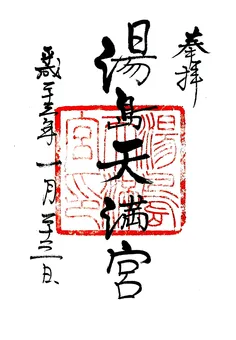 奉拝
湯島天満宮
平成二十三年一月
湯島天満宮之印